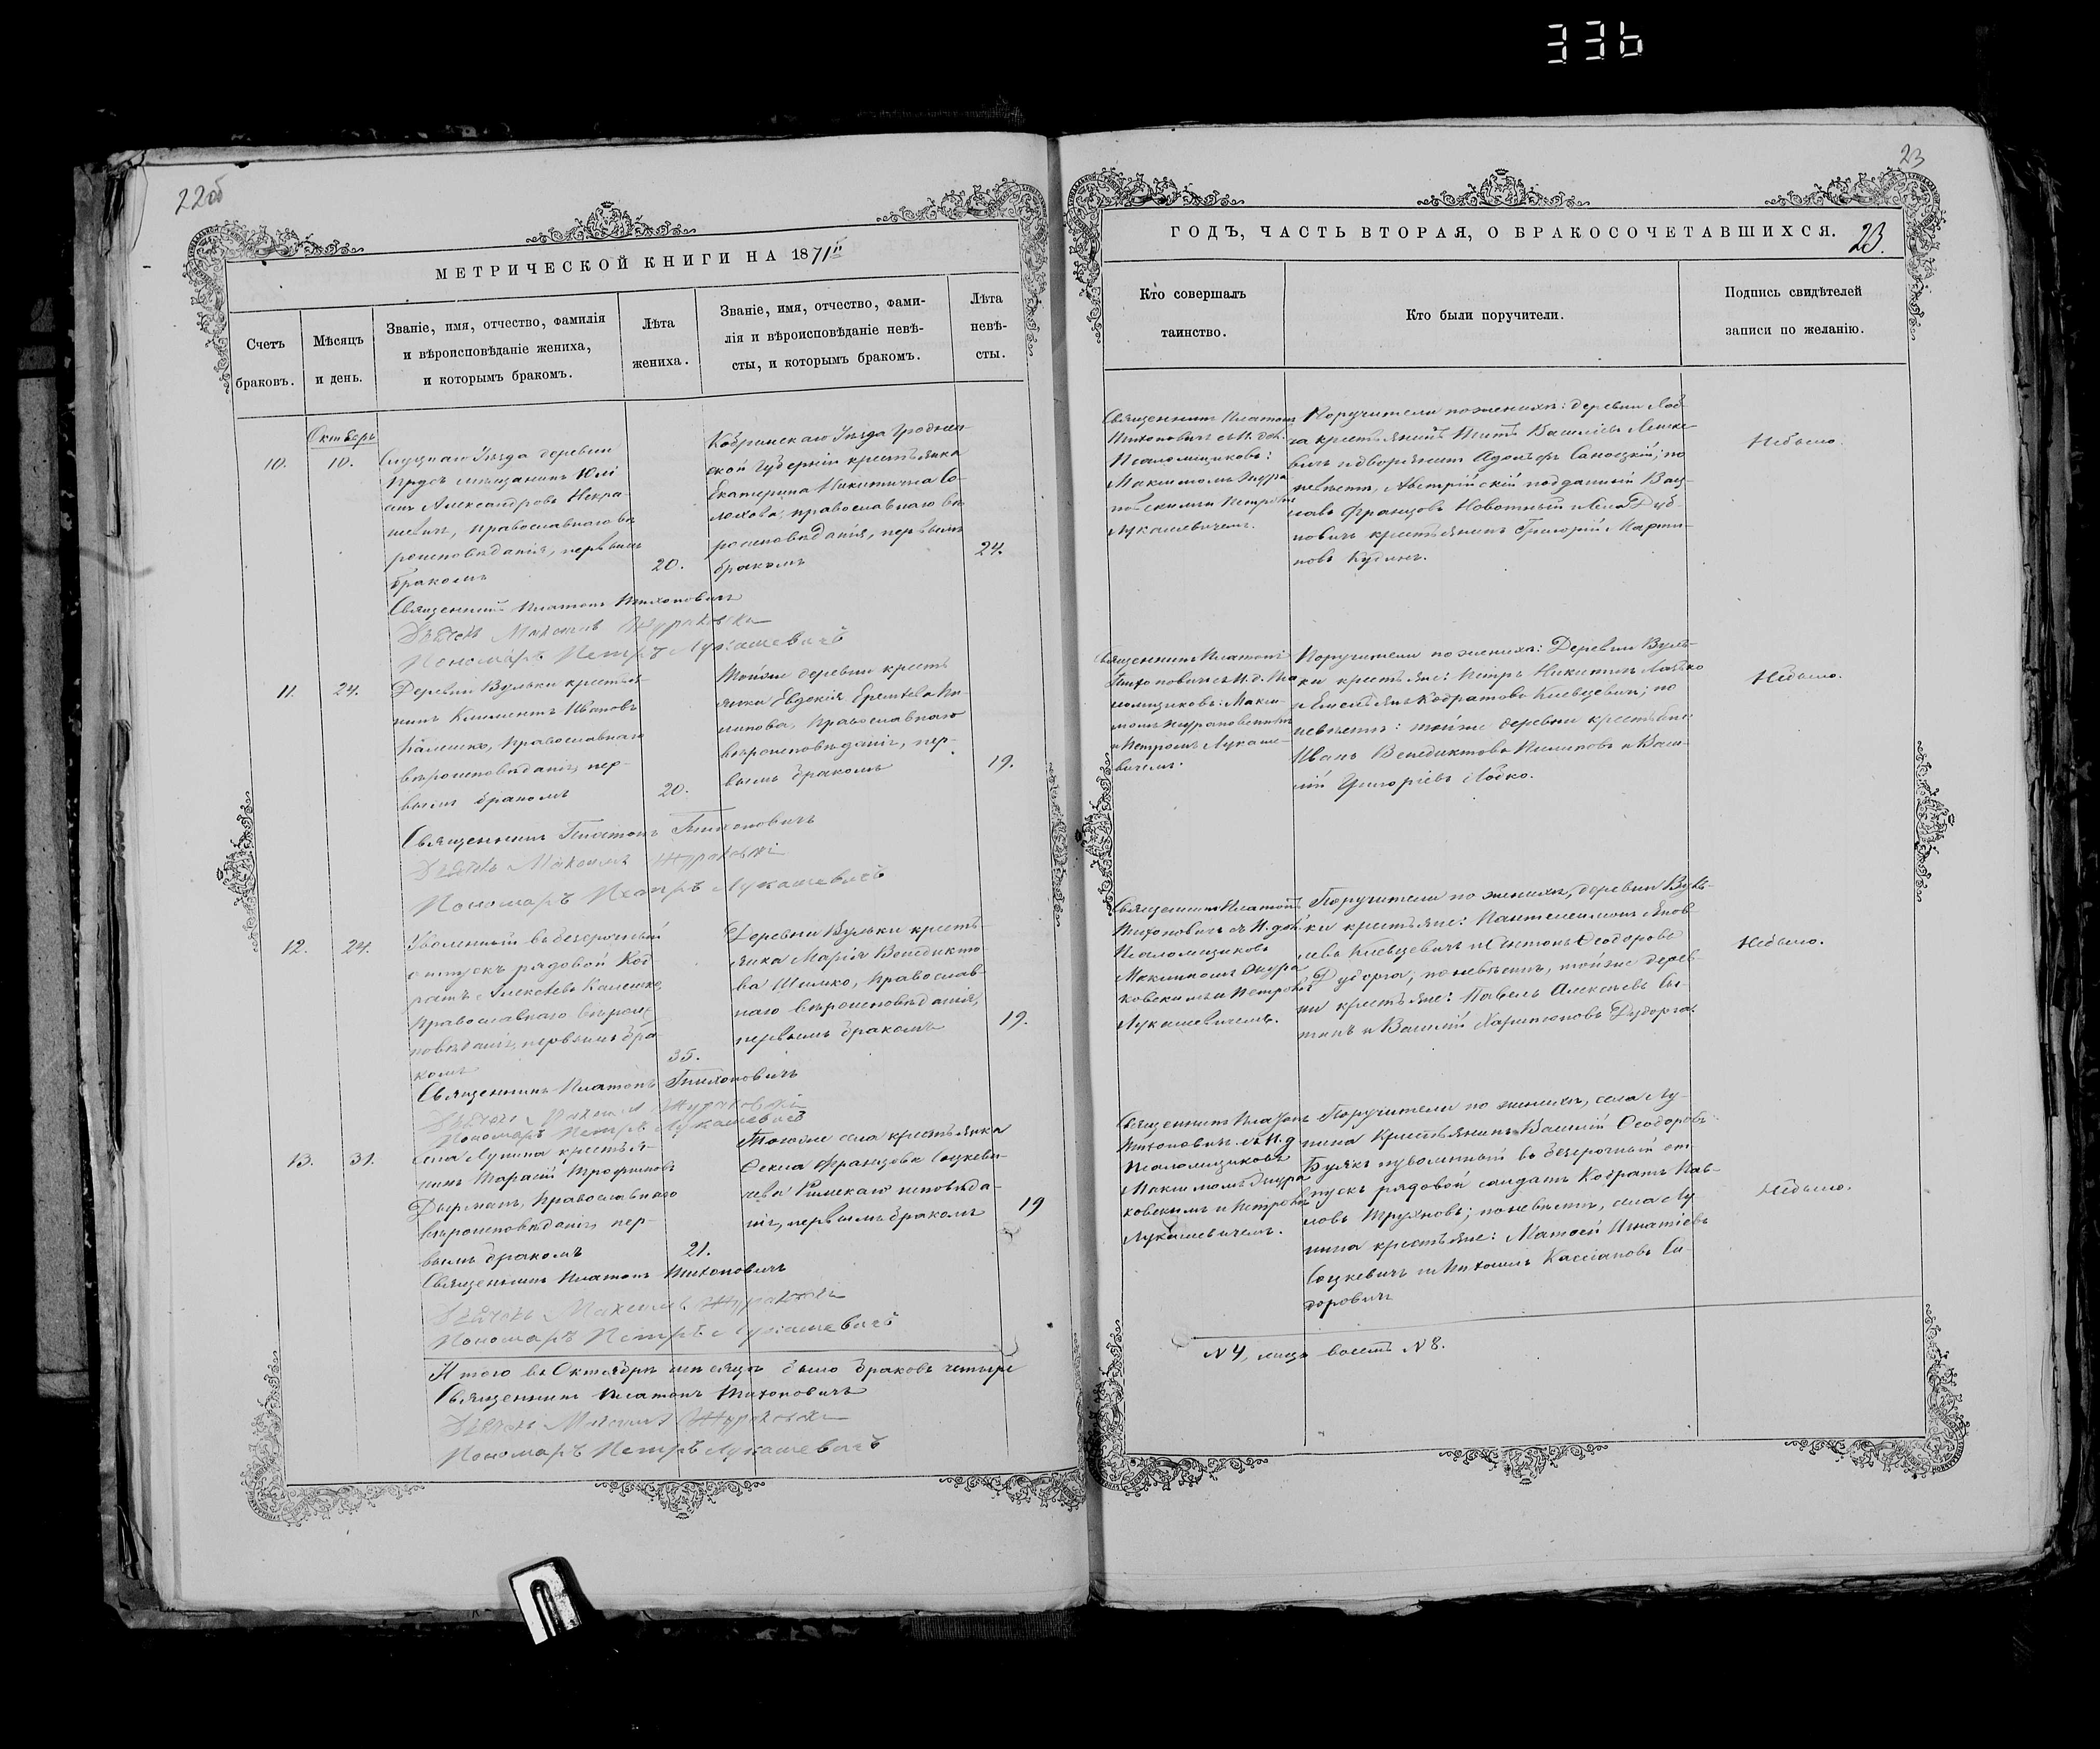 336
22об
МЕТРИЧЕСКОЙ КНИГИ НА 1871й
Счетъ браковъ.
Мѣсяцъ и день.
Званіе, имя, отчество, фамилія
и вѣроисповѣданіе жениха,
и которымъ бракомъ.
Лѣта жениха.
Званіе, имя, отчество, фами-
лія и вѣроисповѣданіе невѣ-
сты, и которымъ бракомъ.
Лѣта
невѣ-
сты.
Октябрь
10.
10.
Слуцкаго Уѣзда деревни
мѣщанинъ Юлі
анъ Александровъ Некра
шевичъ, Православнаго вѣ
роисповѣданія, первымъ
бракомъ
20.
Кобринскаго Уѣзда Гроднен-
ской Губерніи крестьянка
Екатерина Никитична Со
лохова, православнаго вѣ
роисповѣданія, первымъ
бракомъ
24.
Священникъ Платонъ Тихоновичъ
Дьячекъ Максимъ Журавскі
Пономарь Петръ Лукашевичъ
11.
24.
Деревни Вульки крестья-
нинъ Климентъ Ивановъ
Калешко, Православнаго
вѣроисповѣданія, пер-
вымъ бракомъ
20.
Тойже деревни кресть
янка Евдокія
Православнаго
вѣроисповѣданія, пер-
вымъ бракомъ
19.
Священникъ Платонъ Тихоновичъ
Дьячекъ Максимъ Журавскі
Пономарь Петръ Лукашевичъ
12.
24.
Уволенный въ безсрочный
отпускъ рядовой Код
ратъ Алексѣевъ Калешко,
Православнаго вѣроис
повѣданія, первымъ бра
комъ
35.
Деревни Вульки кресть
янка Марія Венедикто
ва Шимко, Православ-
наго вѣроисповѣданія,
первымъ бракомъ
19.
Священникъ Платонъ Тихоновичъ
Дьячекъ Максимъ Журавскі
Пономарь Петръ Лукашевичъ
13.
31.
Села Лунина крестья-
нинъ Тарасій Трофимовъ
Дырманъ, Православнаго
вѣроисповѣданія, пер-
вымъ бракомъ
21.
Тогоже села крестьянка
Ѳекла Францова Соцкеви-
чева Римскаго исповѣда-
нія, первымъ бракомъ
19
Священникъ Платонъ Тихоновичъ
Дьячекъ Максимъ Журавскі
Пономарь Петръ Лукашевичъ
Итого въ Октябрѣ мѣсяцѣ было браковъ четыре
Священникъ Платонъ Тихоновичъ
Дьячекъ Максимъ Журавскі
Пономарь Петръ Лукашевичъ
23
ГОДЪ, ЧАСТЬ ВТОРАЯ, О БРАКОСОЧЕТАВШИХСЯ.
23.
Кто совершалъ
таинство.
Кто были поручители.
Подпись свидѣтелей
записи по желанію.
Священникъ Платонъ
Тихоновичъ съ И. дол.
Псаломщиковъ:
Максимомъ Журав
скимъ и Петромъ
Лукашевичемъ.
Поручители по женихѣ: деревни Лоб-
ча крестьянинъ Титъ Василіевъ
вичъ и дворянинъ Адольфъ Саноцкій; по
невѣстѣ, Австрійскій подданный Вац-
лавъ Францовъ Новотный и села Дуб-
новичъ крестьянинъ Григорій Марти-
новъ Кудинъ.
Небыло.
Священникъ Платонъ
Тихоновичъ съ И. д. Пса
ломщиковъ: Макси-
момъ Журавскимъ
и Петромъ Лукаше-
вичемъ.
Поручители по женихѣ: Деревни Вуль-
ки крестьяне: Петръ Никитинъ
и Емельянъ Кодратовъ Кіевцевичъ; по
невѣстѣ: тойже деревни крестьяне
Иванъ Венедиктовъ и Васи-
лій Григоріевъ Лобко.
Небыло.
Священникъ Платонъ
Тихоновичъ съ И. дол.
Псаломщиковъ
Максимомъ Жура
ковскимъ и Петромъ
Лукашевичемъ.
Поручители по женихѣ, деревни Вуль-
ки крестьяне: Пантелеимонъ Яков-
левъ Кіевцевичъ и Антонъ Ѳеодоровъ
Дуборга; по невѣстѣ, тойже дерев-
ни крестьяне: Павелъ Алексѣевъ
и Василій Харитоновъ Дуборга.
Небыло.
Священникъ Платонъ
Тихоновичъ съ И. д
Псаломщиковъ
Максимомъ Жура
ковскимъ и Петромъ
Лукашевичемъ.
Поручители по женихѣ, села Лу-
нина Крестьянинъ Василій Ѳеодоровъ
и уволенный въ безсрочный от
пускъ рядовой солдатъ Кодратъ Пав-
ловъ Труховъ; по невѣстѣ, села Лу
нина крестьяне: Матѳей Игнатіевъ
Соцкевичъ и Михаилъ Кассіановъ Си
доровичъ
Небыло.
№4, лицъ восемь №8.